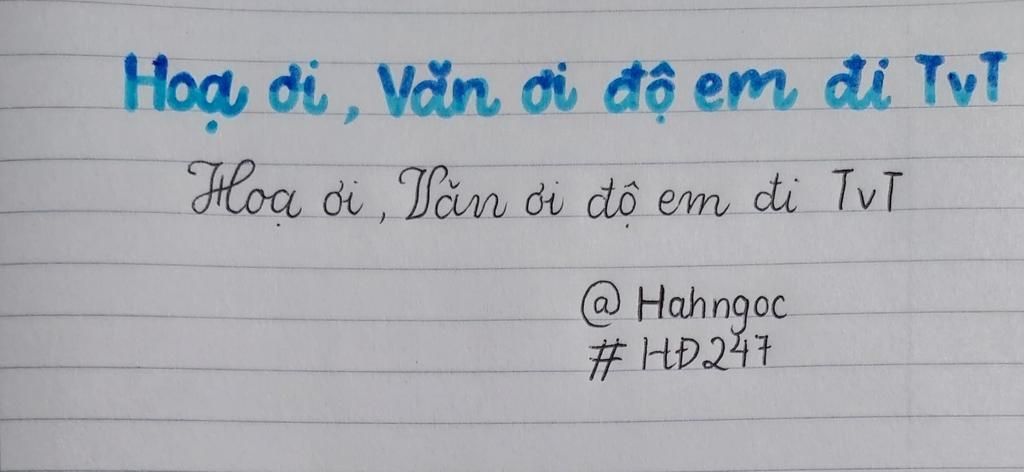 Hoạ ơi, Văn ơi độ em đi TvT
Hoạ ơi, Văn ơi độ em đi TvT
@ Hahngoc
# HĐ247